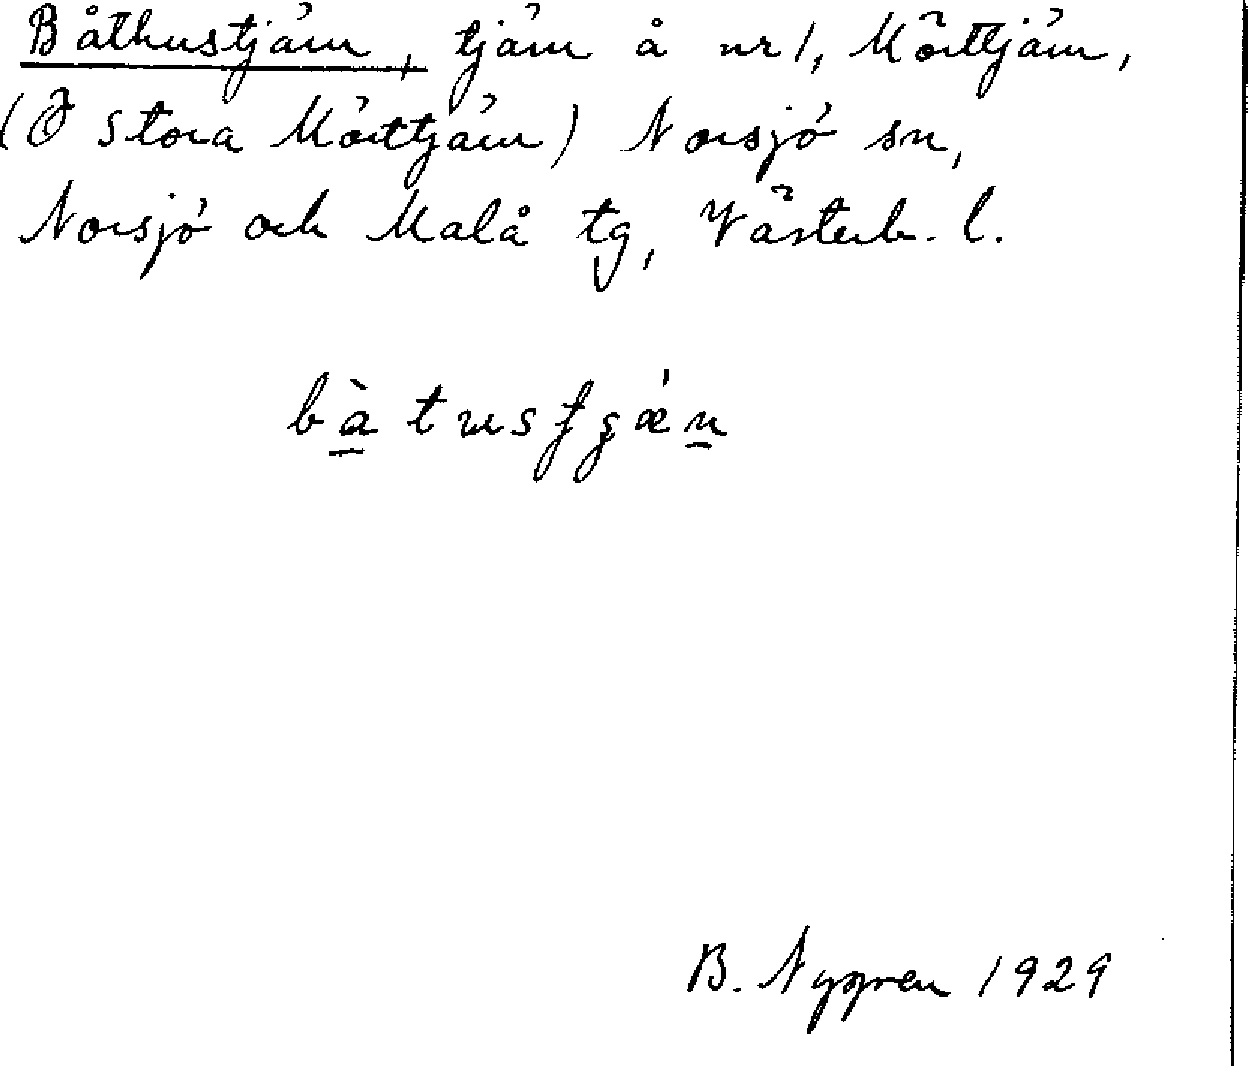 Båthustjärn, tjärn å nr 1, Mörttjärn,
(Ö Stora Mörttjärn) Norsjö sn,
Norsjö och Malå tg, Västerb. l.
B. Nygren 1929